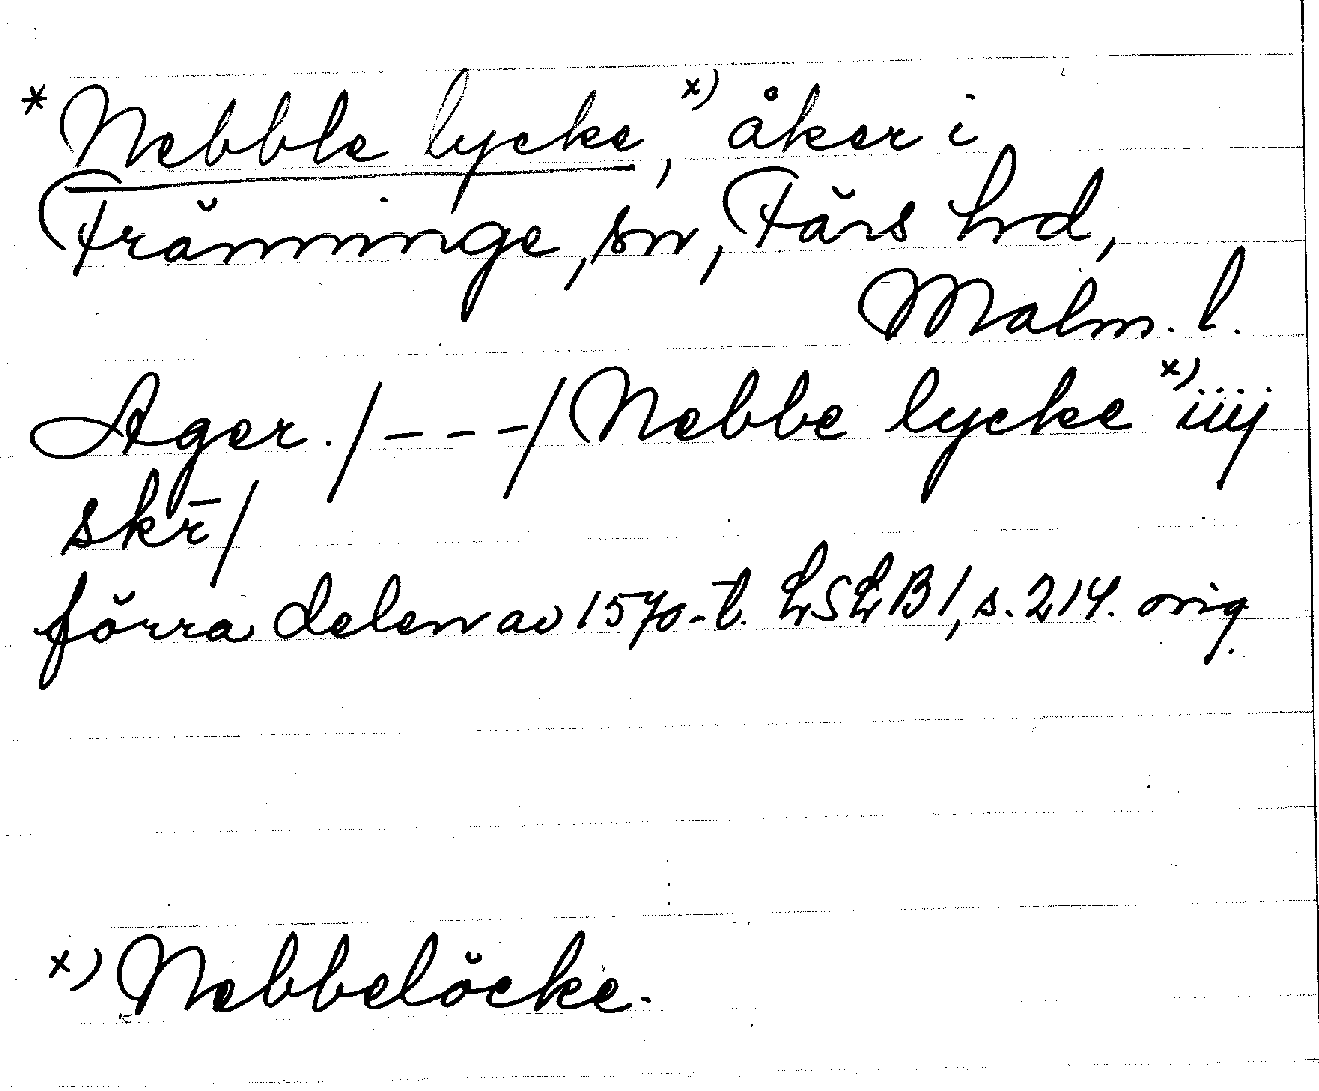 * Nebble lycke, x) åker i
Fränninge, sn, Färs hrd,
Malm. l.
Ager. /---/ Nebbe lycke x) iiij
skr̄/
förra delen av 1570-t. LSLB1, s. 214. orig.
x) Nebbelöcke.